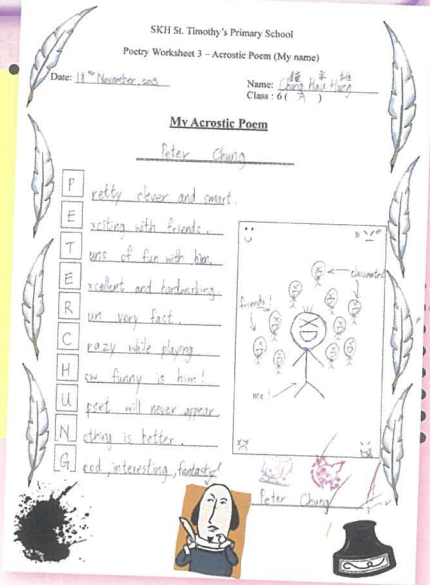 SKH St. Timothy's Primary School
Poetry Worksheet 3 – Acrostic Poem (My name)
Date: 18th November, 2013
Name: Chung Hau
Class : 6 ( A )
My Acrostic Poem
Peter Chung
P retty clever and smart.
E xciting with friends.
T uns of fun with him.
E xcellent and hardworking
R un very fact.
C razy while playing
H ow funny is him!
U pset will never appear.
N othing is better.
G ood, interesting, fantastic!
classmates
friends!
me!
Peter Chung